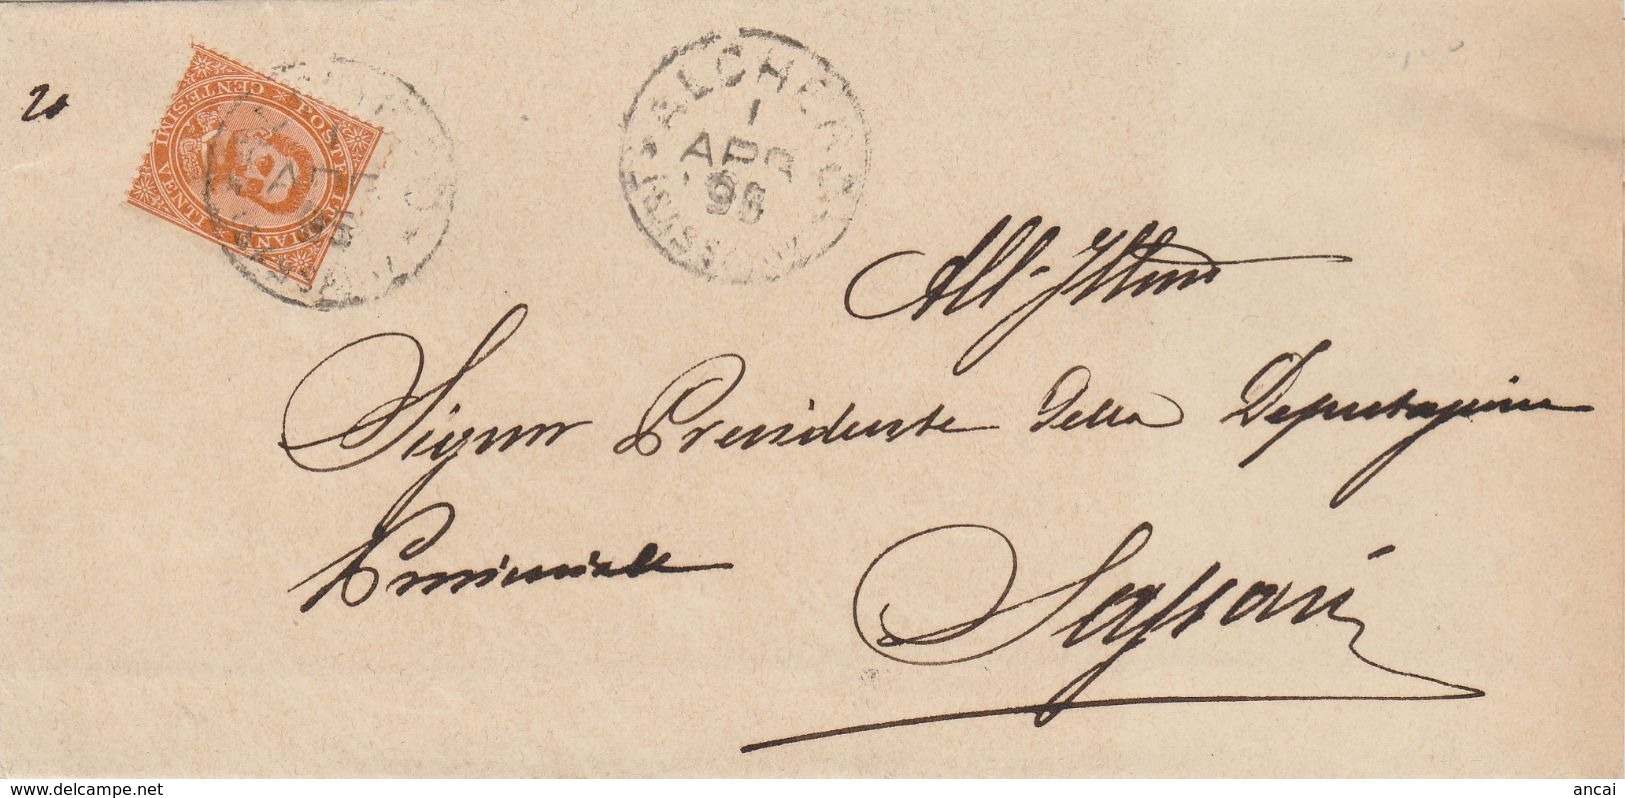 20
POSTE ITALIANE
CENTESIMI VENTI
ALGHERO
1
APR
96
(SASSARI)
All' Illmo
Signor Presidente della Deputazione
Provinciale
Sassari
delcampe.net
ancai